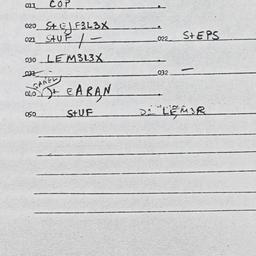 011 COP
020 StEJF3L3X
021 StUF / — 022 StEPS
030 LEM3L3X
032 —
eARAN
050 StUF LEM3R